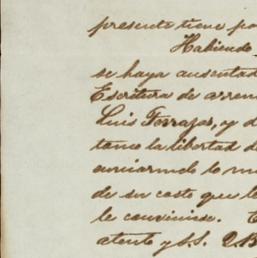 presente tiene po
Habiendo
se haya ausentad
Escritura de arren
Luis Terrazas, y d
tomo la libertad d
enviarmelo lo m
de su costo que le
le conviniese. E
atento y S.S. Q.B